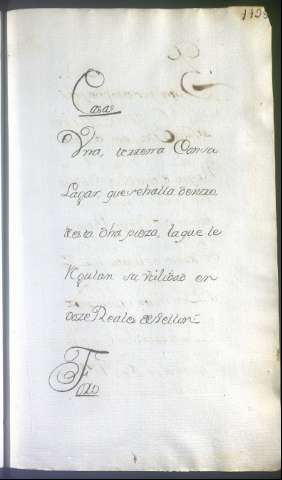 Casas
Vna, terrena Con su
Lagar, que se halla dentro
de esta dha pieza, la que le
Regulan su utilidad en
doze Reales de Vellon
Folio